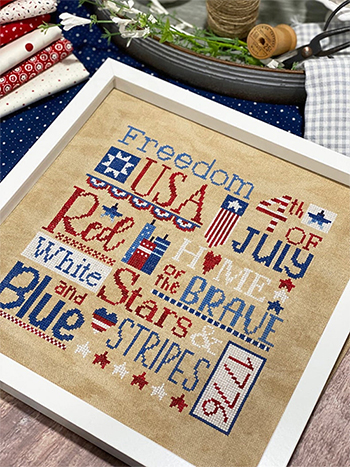 Freedom
USA
4th
OF
JULY
Red
White
and
Blue
HOME
OF the
BRAVE
Stars &
STRIPES
1776